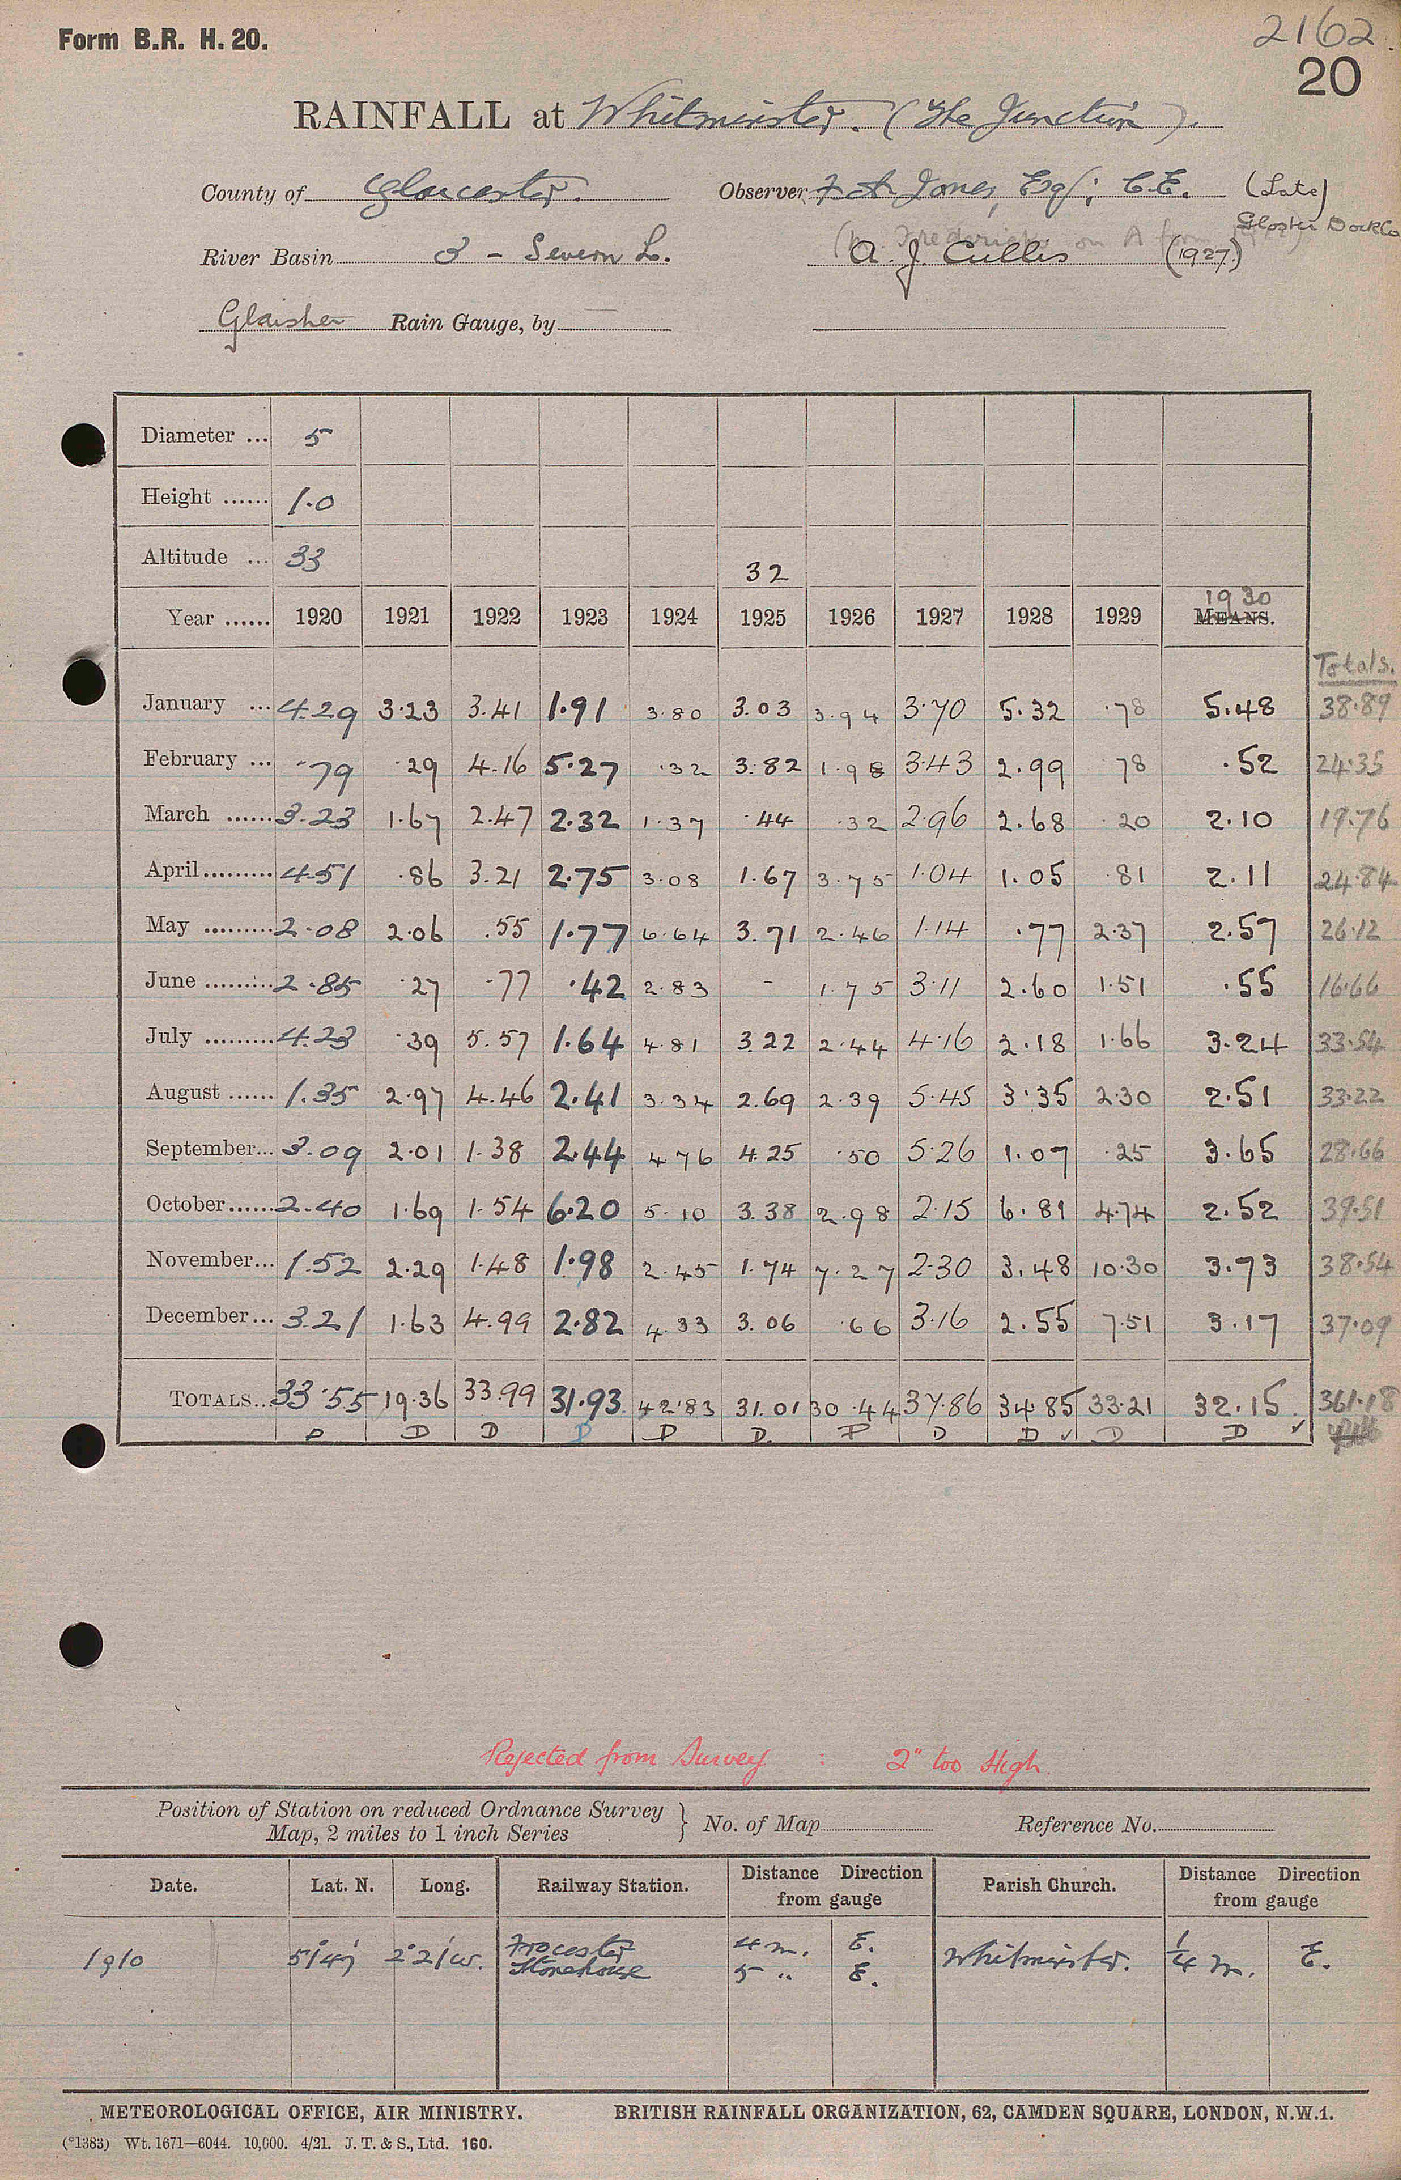 Form B.R. H. 20.
2162
20
RAINFALL at Whitminster. (The Junction).
County of Gloucester. Observer F. A. Jones, Esq; C.E. (Late)
Gloster Dock Co
River Basin 3 - Severn L. A. J. Cullis (1927.)
Glaisher Rain Gauge, by —
Diameter ... 5
Height ...... 1.0
Altitude ... 33 32
1930
Year ...... 1920 1921 1922 1923 1924 1925 1926 1927 1928 1929 MEANS.
Totals.
January ... 4.29 3.23 3.41 1.91 3.80 3.03 3.94 3.70 5.32 .78 5.48 38.89
February ... .79 .29 4.16 5.27 .32 3.82 1.98 3.43 2.99 78 .52 24.35
March ...... 3.23 1.67 2.47 2.32 1.37 .44 .32 2.96 2.68 .20 2.10 19.76
April ......... 4.51 .86 3.21 2.75 3.08 1.67 3.75 1.04 1.05 .81 2.11 24.84
May ......... 2.08 2.06 .55 1.77 6.64 3.71 2.46 1.14 .77 2.37 2.57 26.12
June ......... 2.85 .27 .77 .42 2.83 - 1.75 3.11 2.60 1.51 .55 16.66
July ......... 4.23 .39 5.57 1.64 4.81 3.22 2.44 4.16 2.18 1.66 3.24 33.54
August ...... 1.35 2.97 4.46 2.41 3.34 2.69 2.39 5.45 3.35 2.30 2.51 33.22
September... 3.09 2.01 1.38 2.44 4.76 4.25 .50 5.26 1.07 .25 3.65 28.66
October...... 2.40 1.69 1.54 6.20 5.10 3.38 2.98 2.15 6.81 4.74 2.52 39.51
November... 1.52 2.29 1.48 1.98 2.45 1.74 7.27 2.30 3.48 10.30 3.73 38.54
December... 3.21 1.63 4.99 2.82 4.33 3.06 .66 3.16 2.55 7.51 3.17 37.09
TOTALS... 33.55 19.36 33.99 31.93 42.83 31.01 30.44 37.86 34.85 33.21 32.15 361.18
D D D D D D D D D ✓ D D ✓
Rejected from Survey : 2" too High
Position of Station on reduced Ordnance Survey Map, 2 miles to 1 inch Series } No. of Map Reference No.
Date. Lat. N. Long. Railway Station. Distance Direction from gauge Parish Church. Distance Direction from gauge
1910 51°47' 2°21'W. Frocester 4 m. E. Whitminster. 1/4 m. E.
Stonehouse 5 " E.
METEOROLOGICAL OFFICE, AIR MINISTRY. BRITISH RAINFALL ORGANIZATION, 62, CAMDEN SQUARE, LONDON, N.W.1.
(*1383) Wt. 1671—6044. 10,000. 4/21. J. T. & S., Ltd. 160.